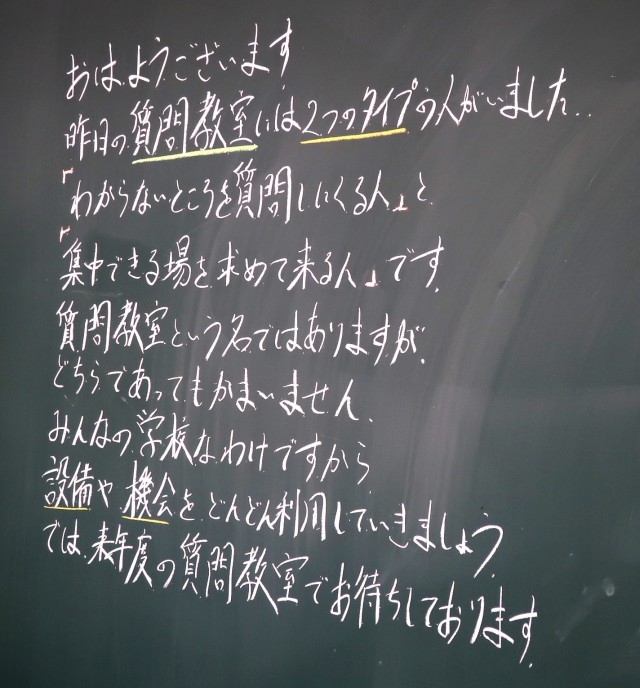 おはようございます
昨日の質問教室には2つのタイプの人がいました。
「わからないところを質問しにくる人」と
「集中できる場を求めて来る人」です。
質問教室という名ではありますが、
どちらであってもかまいません。
みんなの学校なわけですから
設備や機会をどんどん利用していきましょう。
では、来年度の質問教室でお待ちしております。